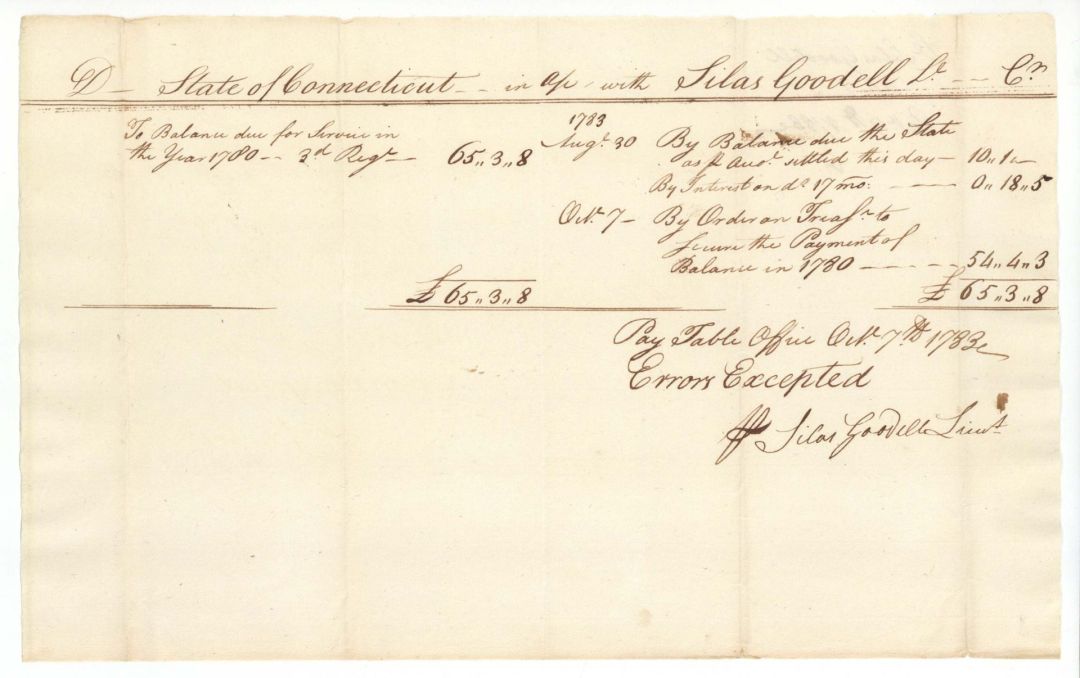 Dr State of Connecticut in a/c with Silas Goodell Lt Cr
To Balance due for Service in
the Year 1780 3d Regt 65,, 3,, 8
1783
Augt 30 By Balance due the State
as pr Accot settled this day 10,, 1,,
By Interest on do 17 mo: 0,, 18,, 5
Octr 7 By Order on Treasr to
secure the Payment of
Balance in 1780 54,, 4,, 3
£ 65,, 3,, 8 £ 65,, 3,, 8
Pay Table Office Octr 7th 1783
Errors Excepted
Silas Goodell Lieut